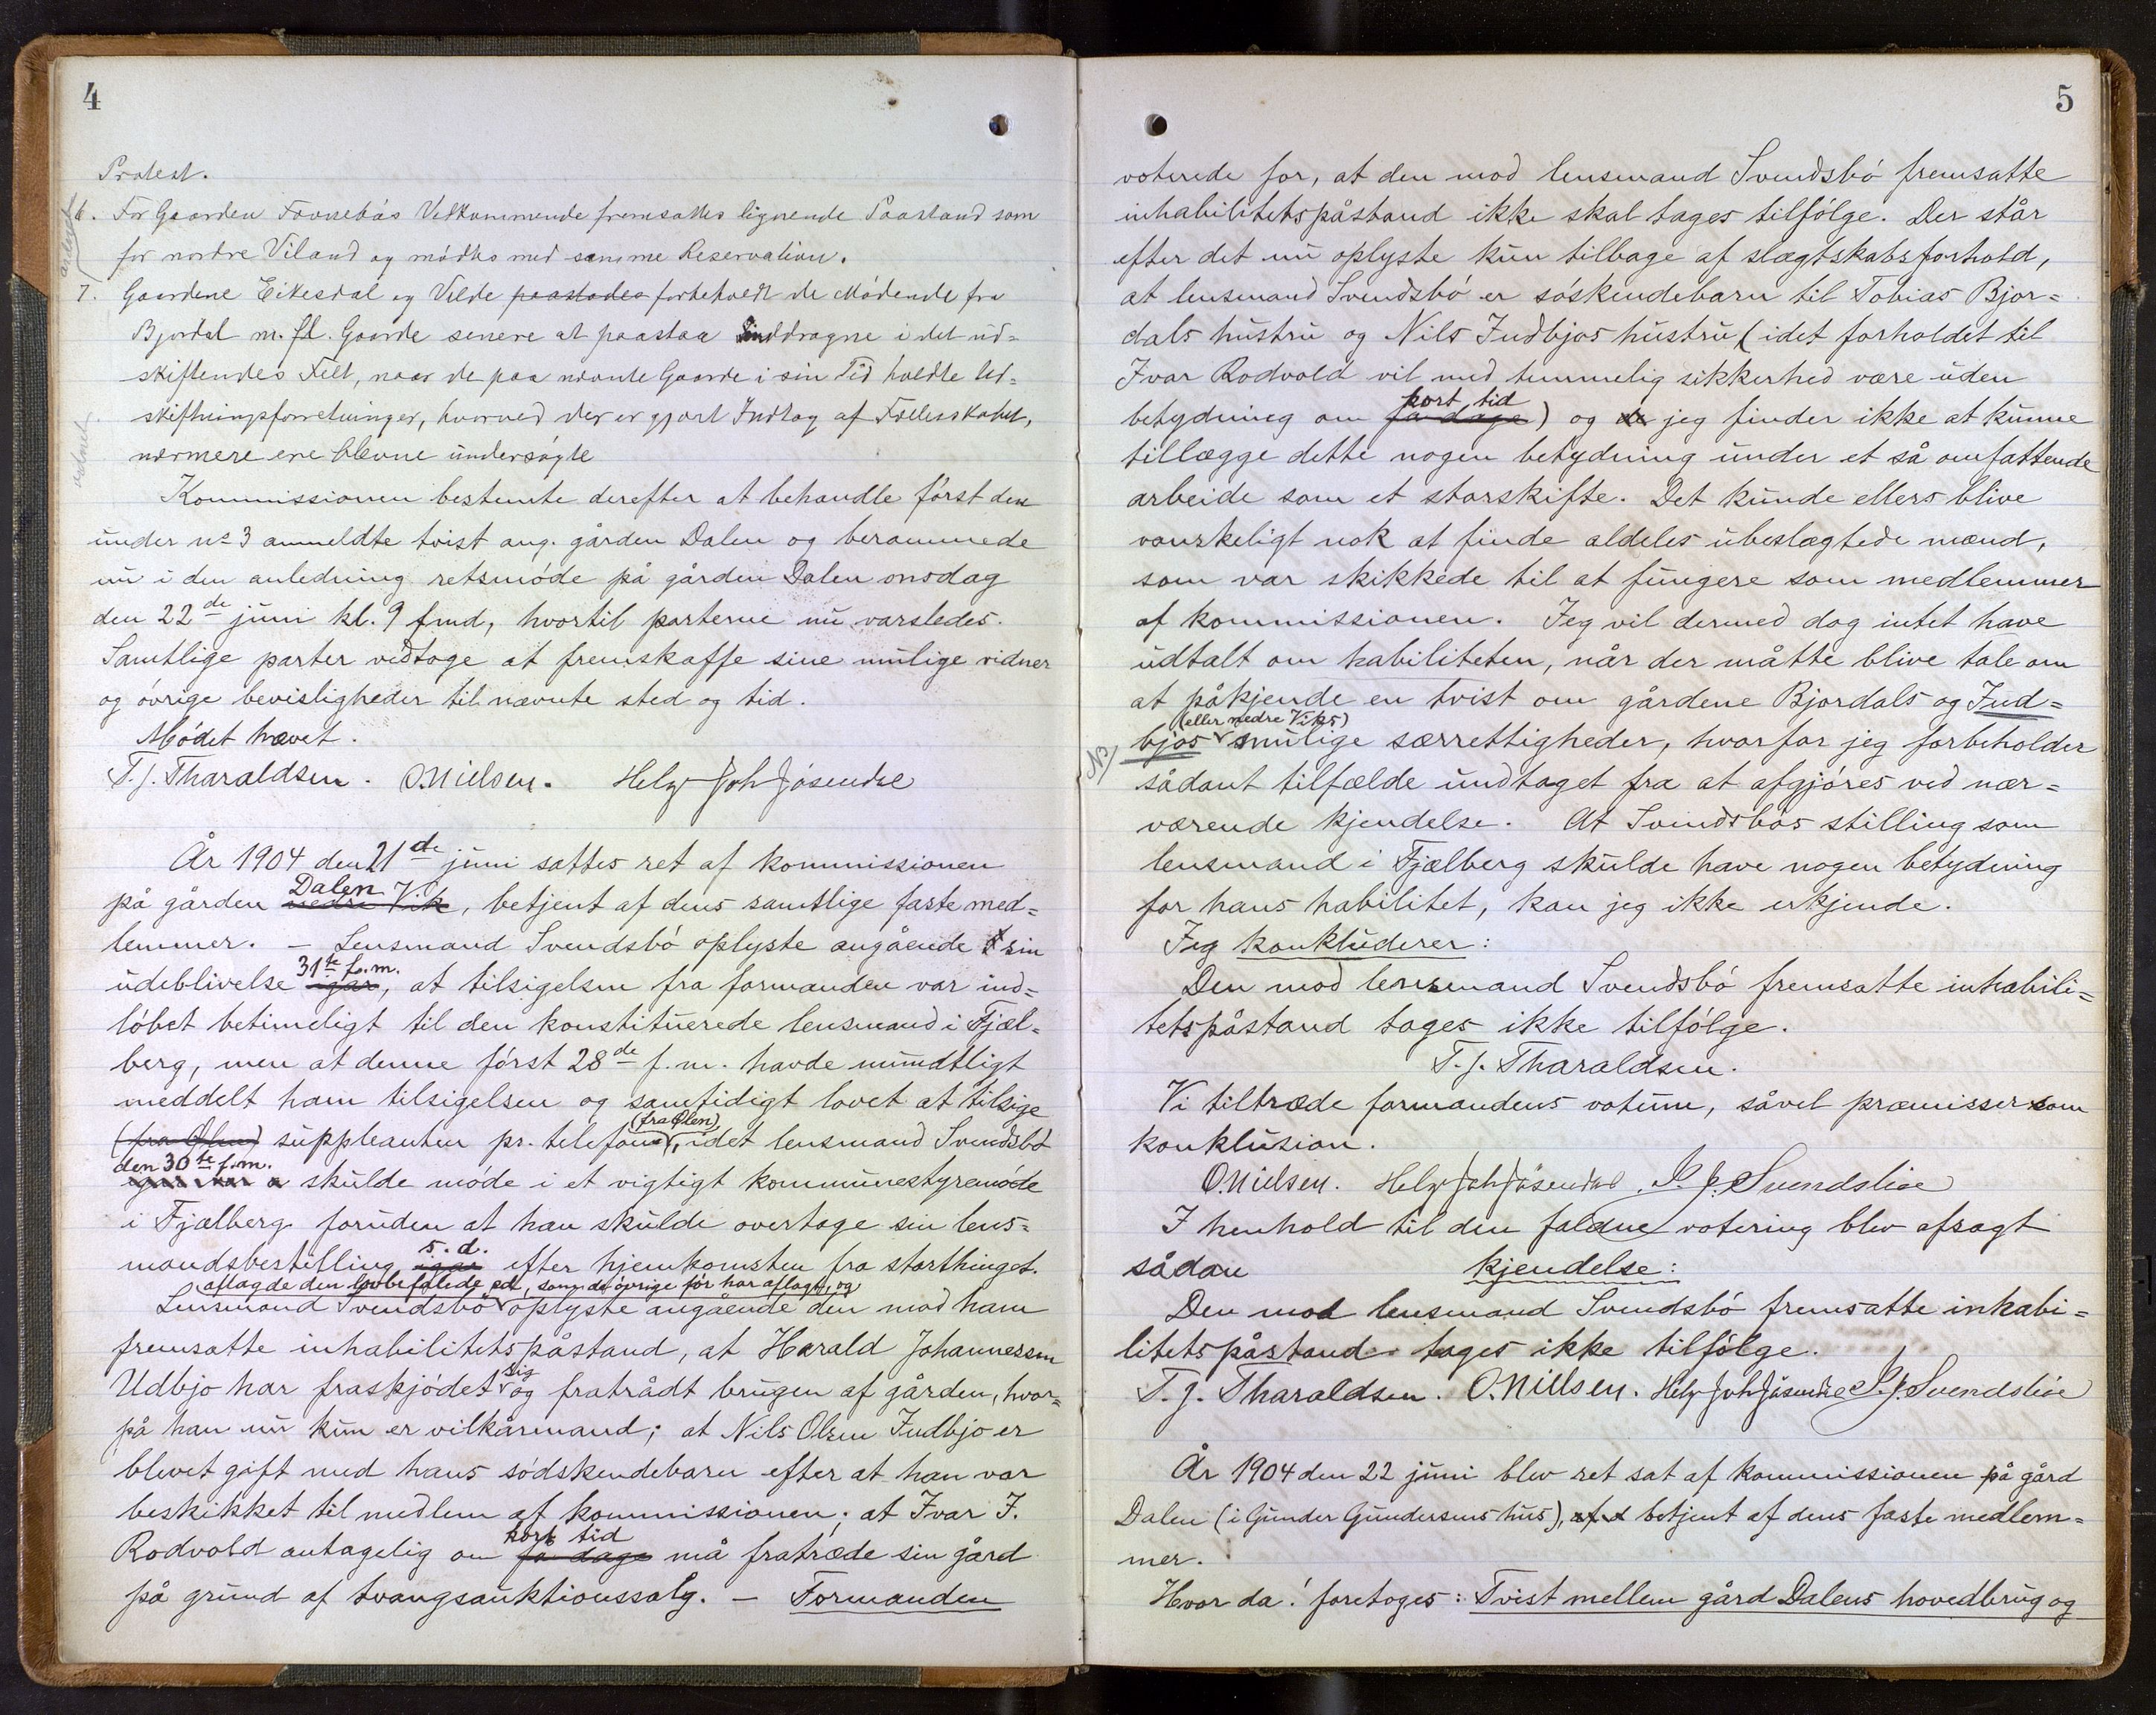 4
Protest.
6. For Gaarden Favnebøs Vedkommende fremsattes lignende Paastand som
for nordre Viland og mødtes med samme Reservation.
7. Gaardene Eikesdal og Velde paastodes forbeholdt de Mødende fra
Bjordal m. fl. Gaarde senere at paastaa inddragne i det ud=
skiftendes Felt, naar de paa nævnte Gaarde i sin Tid holdte Ud=
skiftningsforretninger, hvorved der er gjort Indtag af Fællesskabet,
nærmere ere blevne undersøgte
Kommissionen bestemte derefter at behandle først den
under no 3 anmeldte tvist ang. gården Dalen og berammede
nu i den anledning retsmøde på gården Dalen onsdag
den 22de juni kl. 9 fmd, hvortil parterne nu varsledes.
Samtlige parter vedtoge at fremskaffe sine mulige vidner
og øvrige bevisligheder til nævnte sted og tid.
Mødet hævet.
T. J. Tharaldsen. O. Nielsen. Helge Joh Jøsendal
År 1904 den 21de juni sattes ret af kommissionen
Dalen
på gården nedre Vik, betjent af dens samtlige faste med=
lemmer. – Lensmand Svendsbø oplyste angående sin
31te f. m.
udeblivelse igår, at tilsigelsen fra formanden var ind=
løbet betimeligt til den konstituerede lensmand i Fjæl=
berg, men at denne først 28de f. m. havde mundtligt
meddelt ham tilsigelsen og samtidigt lovet at tilsige
(fra Ølen)
(fra Ølen) suppleanten pr. telefon, idet lensmand Svendsbø
den 30te f. m.
igår var skulde møde i et vigtigt kommunestyremøde
i Fjælberg foruden at han skulde overtage sin lens=
s. d.
mandsbestilling igår efter hjemkomsten fra storthinget.
aflagde den lovbefalede ed, som de øvrige før har aflagt, og
Lensmand Svendsbø oplyste angående den mod ham
fremsatte inhabilitetspåstand, at Harald Johannessen
sig
Udbjo har fraskjødet og fratrådt brugen af gården, hvor=
på han nu kun er vilkårmand; at Nils Olsen Indbjo er
blevet gift med hans sødskendebarn efter at han var
beskikket til medlem af kommissionen; at Ivar I.
kort tid
Rodvold antagelig om få dage må fratræde sin gård
på grund af tvangsauktionssalg. – Formanden
5
voterede for, at den mod lensmand Svendsbø fremsatte
inhabilitetspåstand ikke skal tages tilfølge. Der står
efter det nu oplyste kun tilbage af slægtskabsforhold,
at lensmand Svendsbø er søskendebarn til Tobias Bjor=
dals hustru og Nils Indbjos hustru (idet forholdet til
Ivar Rodvold vil med temmelig sikkerhed være uden
kort tid
betydning om få dage) og jeg finder ikke at kunne
tillægge dette nogen betydning under et så omfattende
arbeide som et storskifte. Det kunde ellers blive
vanskeligt nok at finde aldeles ubeslægtede mænd,
som var skikkede til at fungere som medlemmer
af kommissionen. Jeg vil dermed dog intet have
udtalt om habiliteten, når der måtte blive tale om
at påkjende en tvist om gårdene Bjordals og Ind=
(eller nedre Viks)
NB bjos mulige særrettigheder, hvorfor jeg forbeholder
sådant tilfælde undtaget fra at afgjøres ved nær=
værende kjendelse. At Svendsbøs stilling som
lensmand i Fjælberg skulde have nogen betydning
for hans habilitet, kan jeg ikke erkjende.
Jeg konkluderer:
Den mod lensmand Svendsbø fremsatte inhabili=
tetspåstand tages ikke tilfølge.
T. J. Tharaldsen.
Vi tiltræde formandens votum, såvel præmisser som
konklusion.
O. Nielsen. Helge Joh Jøsendal. J. J. Svendsbøe
I henhold til den faldne votering blev afsagt
sådan kjendelse:
Den mod lensmand Svendsbø fremsatte inhabi=
litetspåstand tages ikke tilfølge.
T. J. Tharaldsen. O. Nielsen. Helge Joh Jøsendal J. J. Svendsbøe
År 1904 den 22 juni blev ret sat af kommissionen på gård
Dalen (i Gunder Gundersens hus), betjent af dens faste medlem=
mer.
Hvor da! foretoges: Tvist mellem gård Dalens hovedbrug og